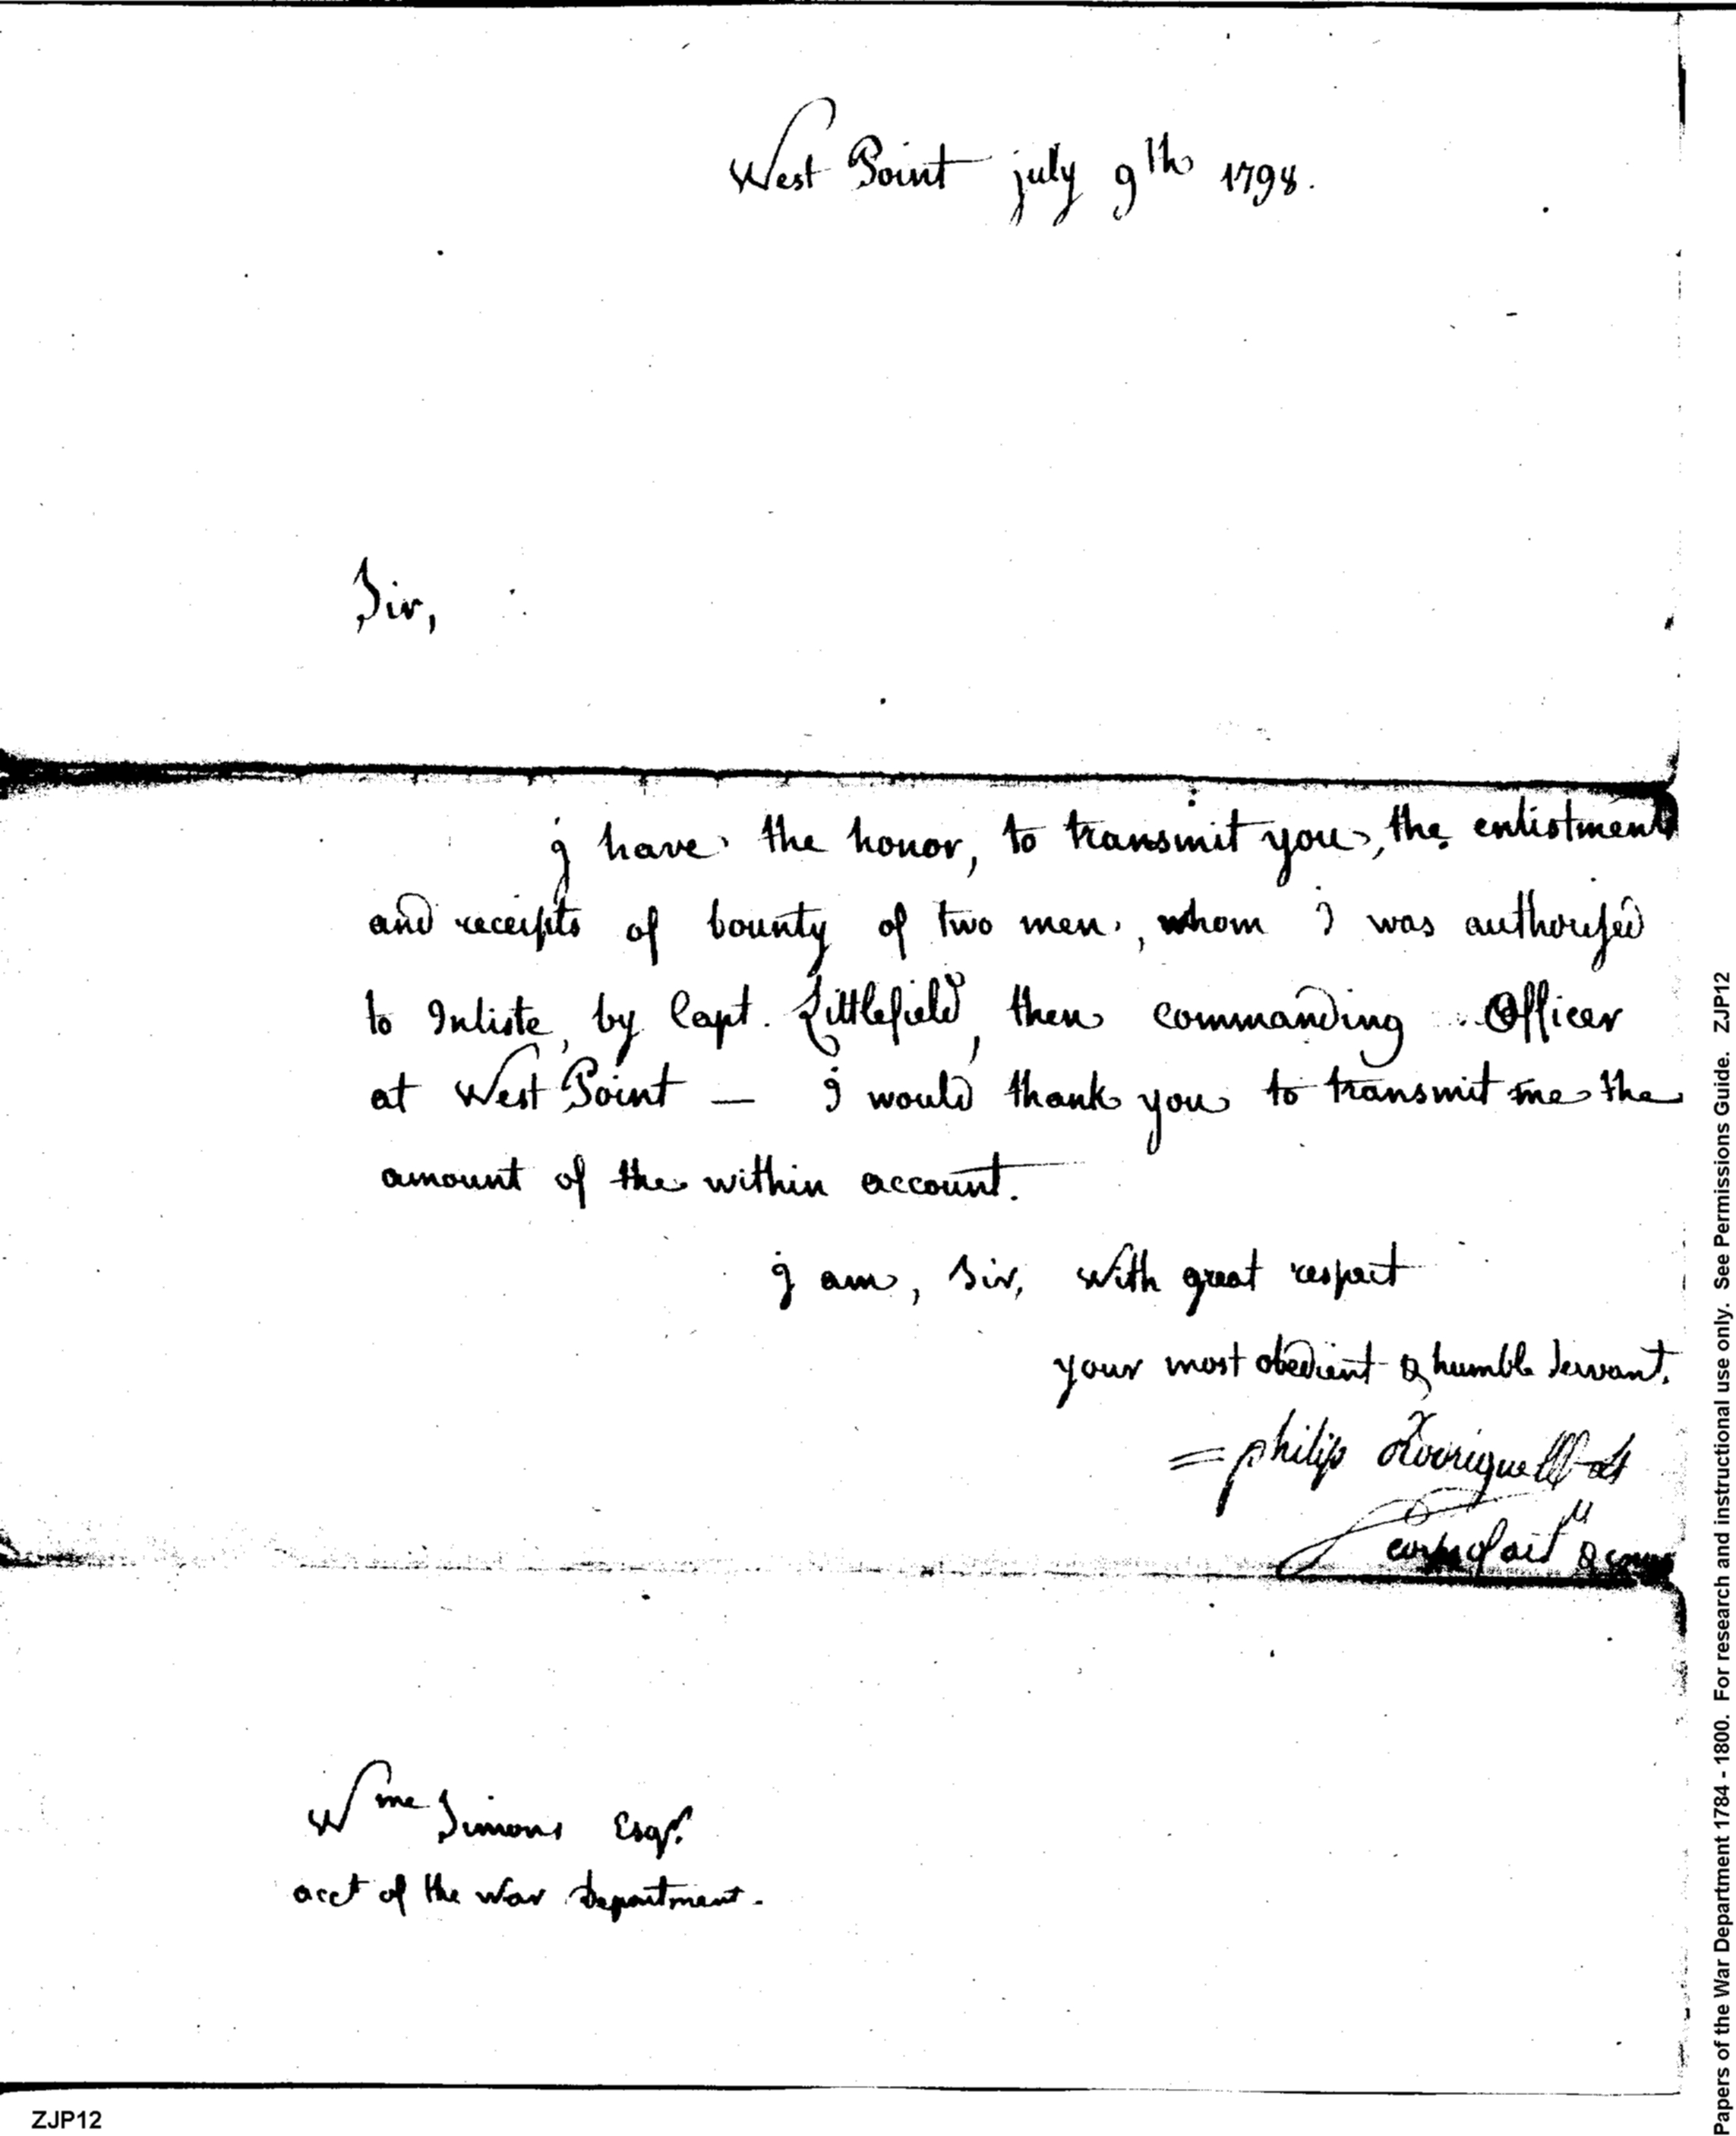 West Point july 9th 1798.
Sir,
I have the honor, to transmit you, the enlistment
and receipts of bounty of two men, whom I was authorised
to Inliste, by Capt. Littlefield, then commanding Officer
at West Point — I would thank you to transmit me the
amount of the within account.
I am, Sir, with great respect
your most obedient & humble Servant.
philip
corps of art &
Wme Simons Esqr.
acct of the War Department.
ZJP12
Papers of the War Department 1784 - 1800. For research and instructional use only. See Permissions Guide. ZJP12